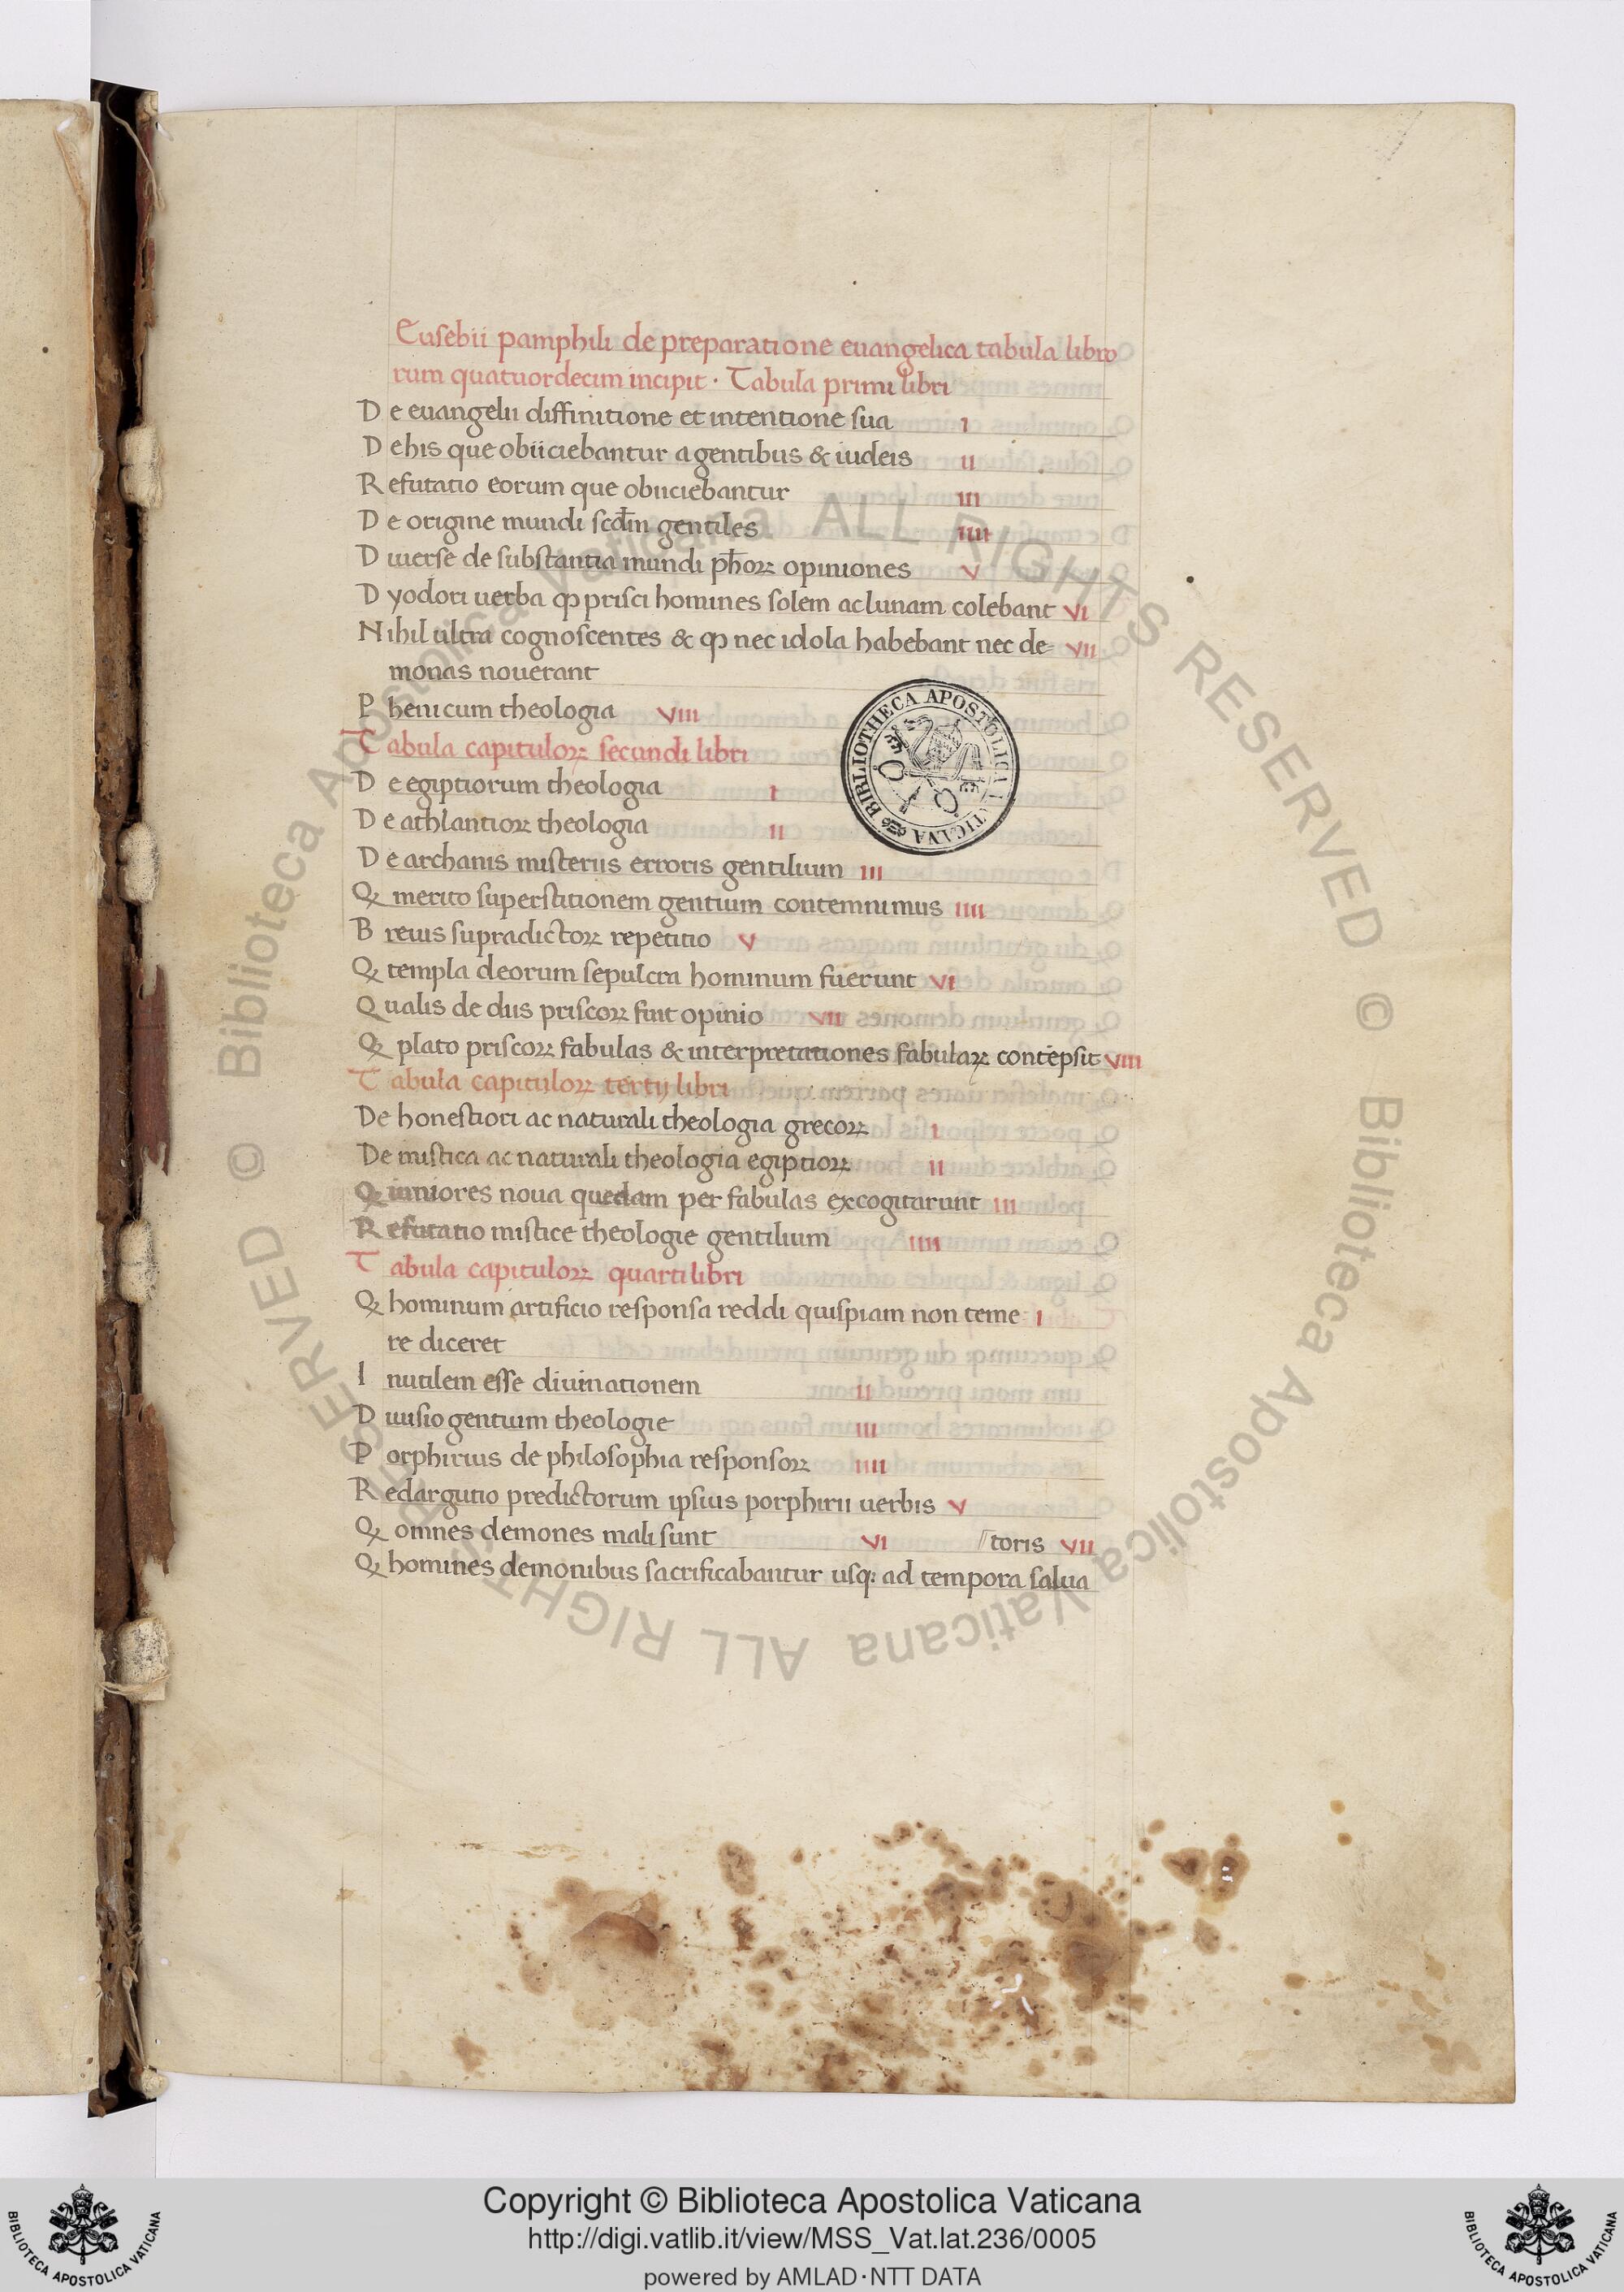 Eusebii pamphili de preparatione euangelica tabula libro
rum quatuordecim incipit · Tabula primi libri
De euangelii diffinitione et intentione sua I
De his que obiiciebantur a gentibus & iudeis II
Refutatio eorum que obiiciebantur III
De origine mundi scdm̄ gentiles IIII
Diuerse de substantia mundi ph̄oꝝ opiniones V
Dyodori uerba ꝙ prisci homines solem ac lunam colebant VI
Nihil ultra cognoscentes & ꝙ nec idola habebant nec de= VII
monas nouerant
Phenicum theologia VIII
Tabula capituloꝝ secundi libri
De egiptiorum theologia I
De athlantioꝝ theologia II
De archanis misteriis erroris gentilium III
Ꝙ merito superstitionem gentium contemnimus IIII
Breuis supradictoꝝ repetitio V
Ꝙ templa deorum sepulcra hominum fuerunt VI
Qualis de diis priscoꝝ fuit opinio VII
Ꝙ plato priscoꝝ fabulas & interpretationes fabulaꝝ contēpsit VIII
Tabula capituloꝝ tertij libri
De honestiori ac naturali theologia grecoꝝ I
De mistica ac naturali theologia egiptioꝝ II
Ꝙ iuniores noua quedam per fabulas excogitarunt III
Refutatio mistice theologie gentilium IIII
Tabula capituloꝝ quarti libri
Ꝙ hominum artificio responsa reddi quispiam non teme I
re diceret
Inutilem esse diuinationem II
Diuisio gentium theologie III
Porphirius de philosophia responsoꝝ IIII
Redargutio predictorum ipsius porphirii uerbis V
Ꝙ omnes demones mali sunt VI //toris VII
Ꝙ homines demonibus sacrificabantur usq: ad tempora salua
BIBLIOTHECA APOSTOLICA VATICANA
© Biblioteca Apostolica Vaticana ALL RIGHTS RESERVED
© Biblioteca Apostolica Vaticana ALL RIGHTS RESERVED
Copyright © Biblioteca Apostolica Vaticana
http://digi.vatlib.it/view/MSS_Vat.lat.236/0005
powered by AMLAD·NTT DATA
BIBLIOTECA APOSTOLICA VATICANA
BIBLIOTECA APOSTOLICA VATICANA